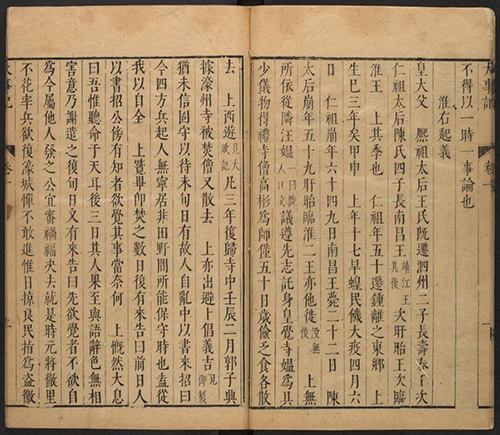 不得以一時一事論也
淮右起義
皇大父 熈祖太后王氏旣遷泗州二子長壽春王次
仁祖太后陳氏四子長南昌王靖江王其後次盱眙王次臨
淮王 上其季也 仁祖年五十遷鍾離之東鄉 上
生巳三年矣甲申 上年十七旱蝗民饑大疫四月六
日 仁祖年六十四九日南昌王薨二十二日 陳
太后崩年五十九盱眙臨淮二王亦他徙 上無
所依從隣汪媼議遵先志託身皇覺寺媼爲具
少儀物得禮寺僧高彬爲師僅五十日歲儉乏食各散
去 上西遊見大政記凡三年後歸寺中壬辰二月郭子興
據濠州寺被焚僧又散去 上亦出避卜倡義吉見御製
猶未信固守以待未旬日有故人自亂中以書來招曰
今四方兵起人無寧居非田野間所能保守時也盍從
我以自全 上覽畢卽焚之數日復有來告曰前日人
以書招公傍有知者欲覺其事當奈何 上慨然大息
曰吾惟聽命于天耳後三日其人果至與語辭色無相
害意乃謝遣之復旬日又有來告曰先欲覺者不欲自
爲今屬他人發之公宜審禍福决去就是時元將徹里
不花率兵欲復濠城憚不敢進惟日掠良民爲盗徹